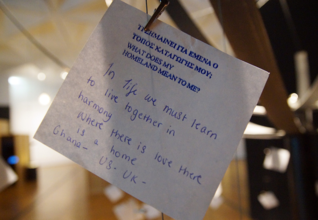 ΤΙ ΣΗΜΑΙΝΕΙ ΓΙΑ ΕΜΕΝΑ Ο
ΤΟΠΟΣ ΚΑΤΑΓΩΓΗΣ ΜΟΥ;
WHAT DOES MY
HOMELAND MEAN TO ME?
In life we must learn
to live together in
harmony
Where there is love there
is a home
Ghana - US - UK -